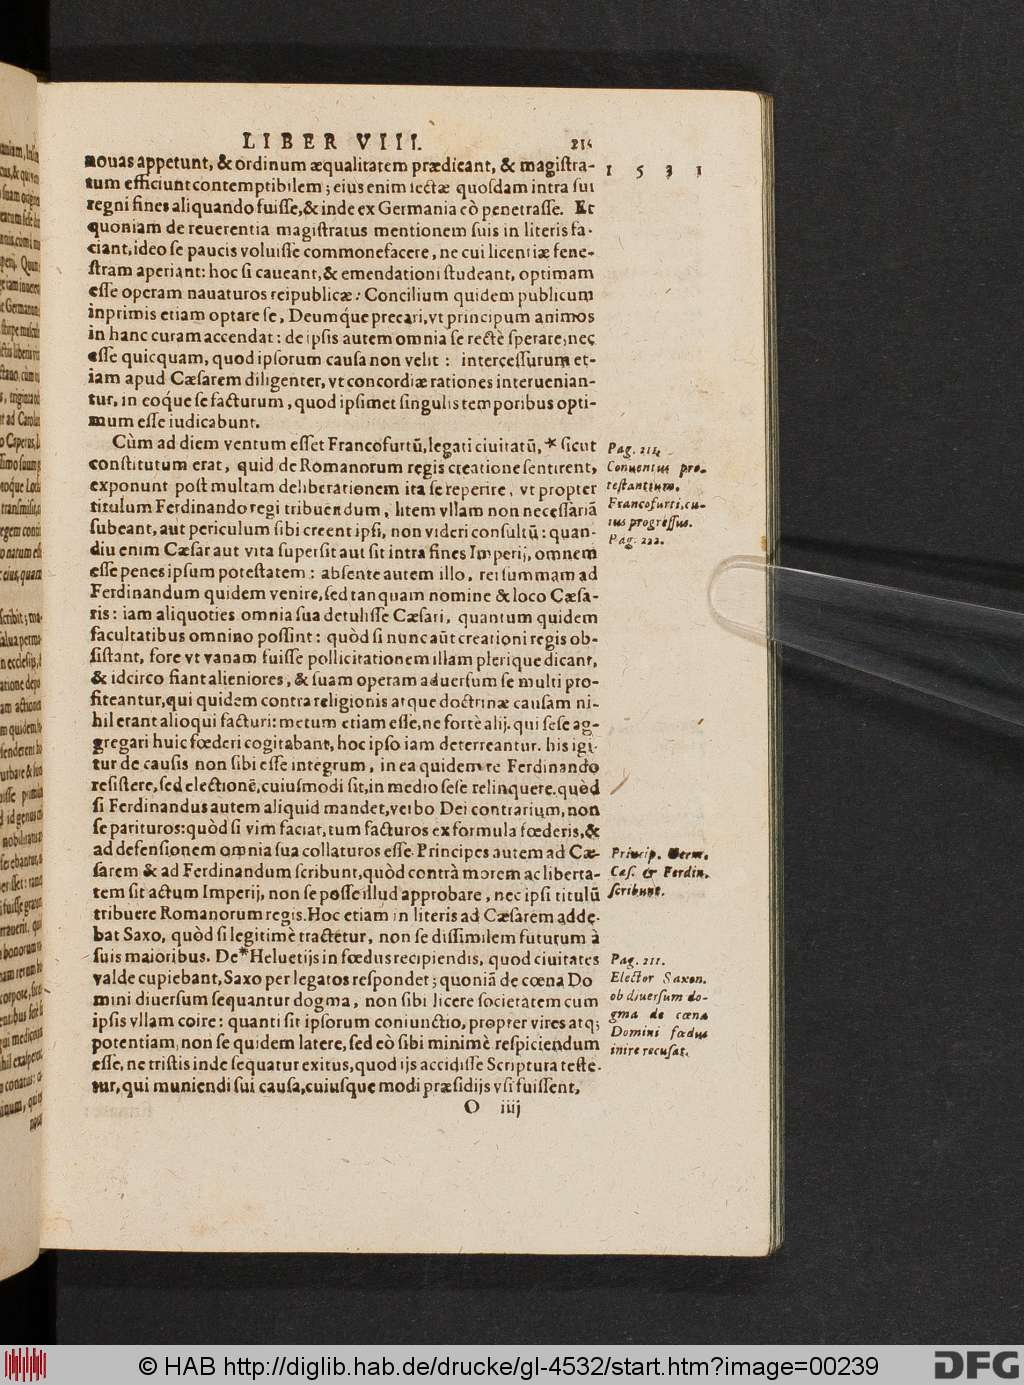 LIBER VIII. 214
nouas appetunt, & ordinum æqualitatem prædicant, & magiſtra- 1531
tum efficiunt contemptibilem; eius enim ſectæ quoſdam intra ſui
regni fines aliquando fuiſſe, & inde ex Germania eò penetraſſe. Et
quoniam de reuerentia magiſtratus mentionem ſuis in literis fa-
ciant, ideo ſe paucis voluiſſe commonefacere, ne cui licentiæ fene-
ſtram aperiant: hoc ſi caueant, & emendationi ſtudeant, optimam
eſſe operam nauaturos reipublicæ: Concilium quidem publicum
inprimis etiam optare ſe, Deumq́ue precari, vt principum animos
in hanc curam accendat: de ipſis autem omnia ſe rectè ſperare, nec
eſſe quicquam, quod ipſorum cauſa non velit: interceſſurum et-
iam apud Cæſarem diligenter, vt concordiæ rationes interuenian-
tur, in eoque ſe facturum, quod ipſimet ſingulis temporibus opti-
mum eſſe iudicabunt.
Cùm ad diem ventum eſſet Francofurtū, legati ciuitatū, * ſicut
conſtitutum erat, quid de Romanorum regis creatione ſentirent,
exponunt poſt multam deliberationem ita ſe reperire, vt propter
titulum Ferdinando regi tribuendum, litem vllam non neceſſariā
ſubeant, aut periculum ſibi creent ipſi, non videri conſultū: quan-
diu enim Cæſar aut vita ſuperſit aut ſit intra fines Imperij, omnem
eſſe penes ipſum poteſtatem: abſente autem illo, rei ſummam ad
Ferdinandum quidem venire, ſed tanquam nomine & loco Cæſa-
ris: iam aliquoties omnia ſua detuliſſe Cæſari, quantum quidem
facultatibus omnino poſſint: quòd ſi nunc aūt creationi regis ob-
ſiſtant, fore vt vanam fuiſſe pollicitationem illam plerique dicant,
& idcirco fiant alieniores, & ſuam operam aduerſum ſe multi pro-
fiteantur, qui quidem contra religionis atque doctrinæ cauſam ni-
hil erant alioqui facturi: metum etiam eſſe, ne fortè alij, qui ſeſe ag-
gregari huic fœderi cogitabant, hoc ipſo iam deterreantur. his igi-
tur de cauſis non ſibi eſſe integrum, in ea quidem re Ferdinando
reſiſtere, ſed electionē, cuiuſmodi ſit, in medio ſeſe relinquere. quòd
ſi Ferdinandus autem aliquid mandet, verbo Dei contrarium, non
ſe parituros: quòd ſi vim faciat, tum facturos ex formula fœderis, &
ad defenſionem omnia ſua collaturos eſſe. Principes autem ad Cæ-
ſarem & ad Ferdinandum ſcribunt, quòd contrà morem ac liberta-
tem ſit actum Imperij, non ſe poſſe illud approbare, nec ipſi titulū
tribuere Romanorum regis. Hoc etiam in literis ad Cæſarem adde-
bat Saxo, quòd ſi legitimè tractetur, non ſe diſſimilem futurum à
ſuis maioribus. De * Heluetijs in fœdus recipiendis, quod ciuitates
valde cupiebant, Saxo per legatos reſpondet; quoniā de cœna Do
mini diuerſum ſequantur dogma, non ſibi licere ſocietatem cum
ipſis vllam coire: quanti ſit ipſorum coniunctio, propter vires atq;
potentiam, non ſe quidem latere, ſed eò ſibi minimè reſpiciendum
eſſe, ne triſtis inde ſequatur exitus, quod ijs accidiſſe Scriptura teſte-
tur, qui muniendi ſui cauſa, cuiuſque modi præſidijs vſi fuiſſent,
O iiij
Pag. 214
Conuentus pro-
teſtantium.
Francofurti, cu-
ius progreſſus.
Pag. 222.
Princip. Germ.
Caſ. & Ferdin.
ſcribunt.
Pag. 211.
Elector Saxon.
ob diuerſum do-
gma de cœna
Domini fœdus
inire recuſat.
© HAB http://diglib.hab.de/drucke/gl-4532/start.htm?image=00239
DFG